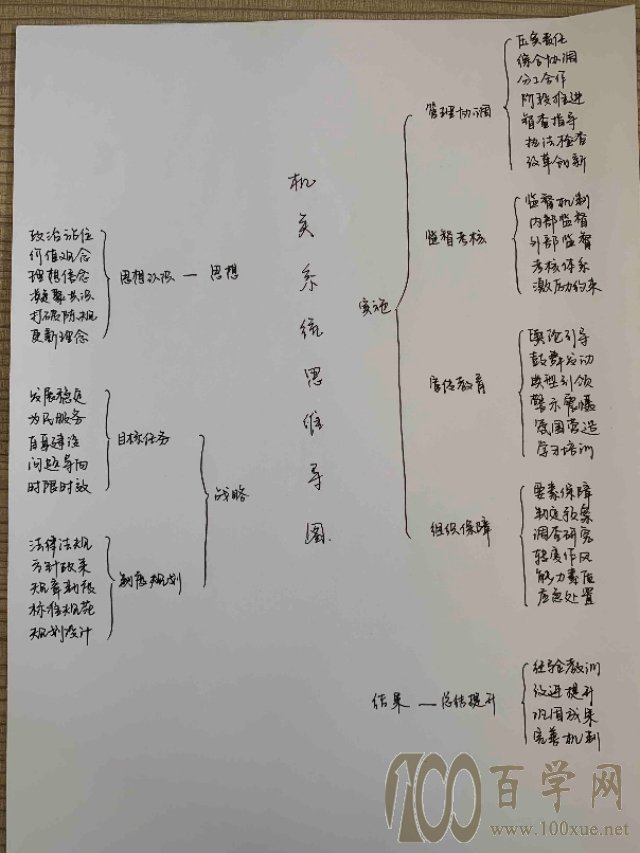 机关系统思维导图
政治站位
价值观念
理想信念
凝聚共识
打破陈规
更新理念
思想认识 — 思想
发展稳定
为民服务
自身建设
问题导向
时限时效
目标任务
法律法规
方针政策
规章制度
标准规范
规划设计
制度规划
战略
实施
管理协调
压实责任
综合协调
分工合作
阶段推进
督查指导
执法检查
改革创新
监督考核
监督机制
内部监督
外部监督
考核体系
激励约束
宣传教育
舆论引导
鼓舞发动
典型引领
警示震慑
氛围营造
学习培训
组织保障
要素保障
制定预案
调查研究
轻度作风
能力素质
应急处置
结果 — 总结提升
经验教训
改进提升
巩固成果
完善机制
100百学网
www.100xue.net